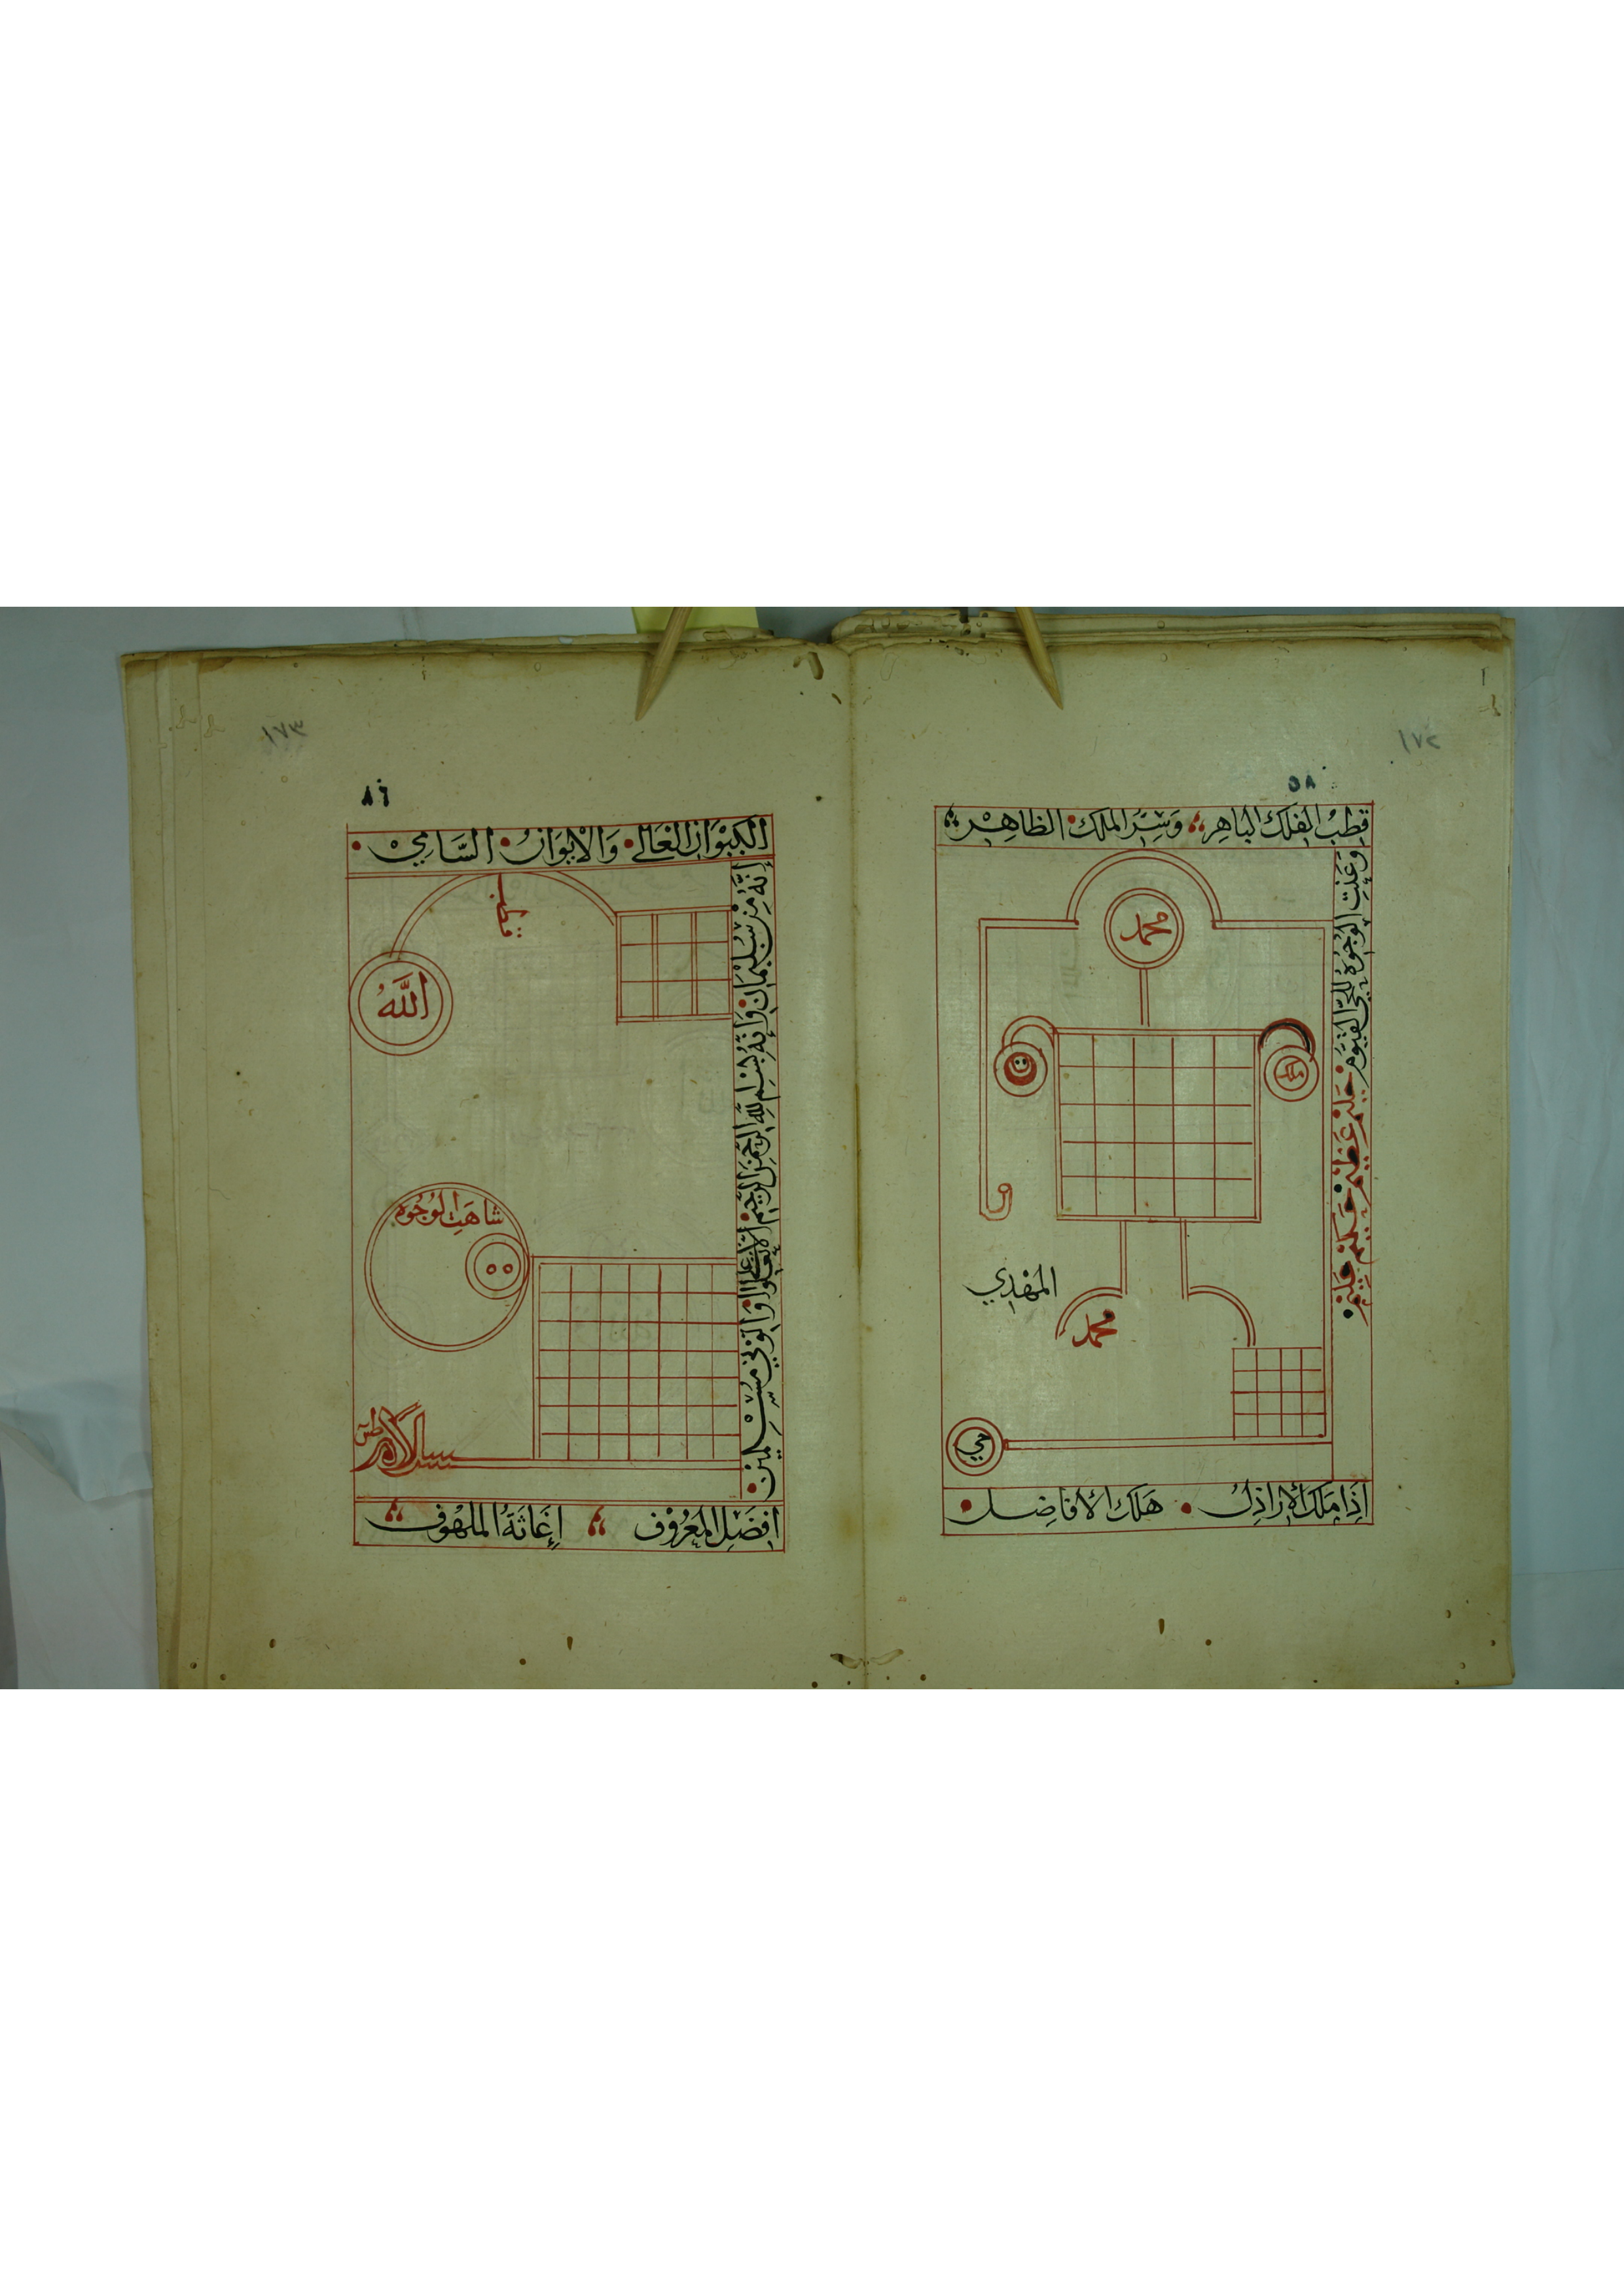 ١٧٢
٥٨
قُطْبُ الفَلَكِ البَاهِر وَسِرُّ المُلْكِ الظَاهِر
وَعَنَتِ الوُجُوهُ لِلْحَيِّ القَيُّومِ
محمد
ملك
المهدي
محمد
حي
إِذَا مَلَكَ الأَرَاذِلُ هَلَكَ الأَفَاضِل
١٧٣
٨٦
وَالإِيوَانُ السَّامِي
إِنَّهُ مِنْ سُلَيْمَانَ وَإِنَّهُ بِسْمِ اللهِ الرَّحْمَنِ الرَّحِيمِ أَلَّا تَعْلُوا عَلَيَّ وَأْتُونِي مُسْلِمِينَ
قطب
اللهُ
شَاهَتِ الوُجُوه
أَفْضَلُ المَعْرُوفِ إِغَاثَةُ المَلْهُوفِ